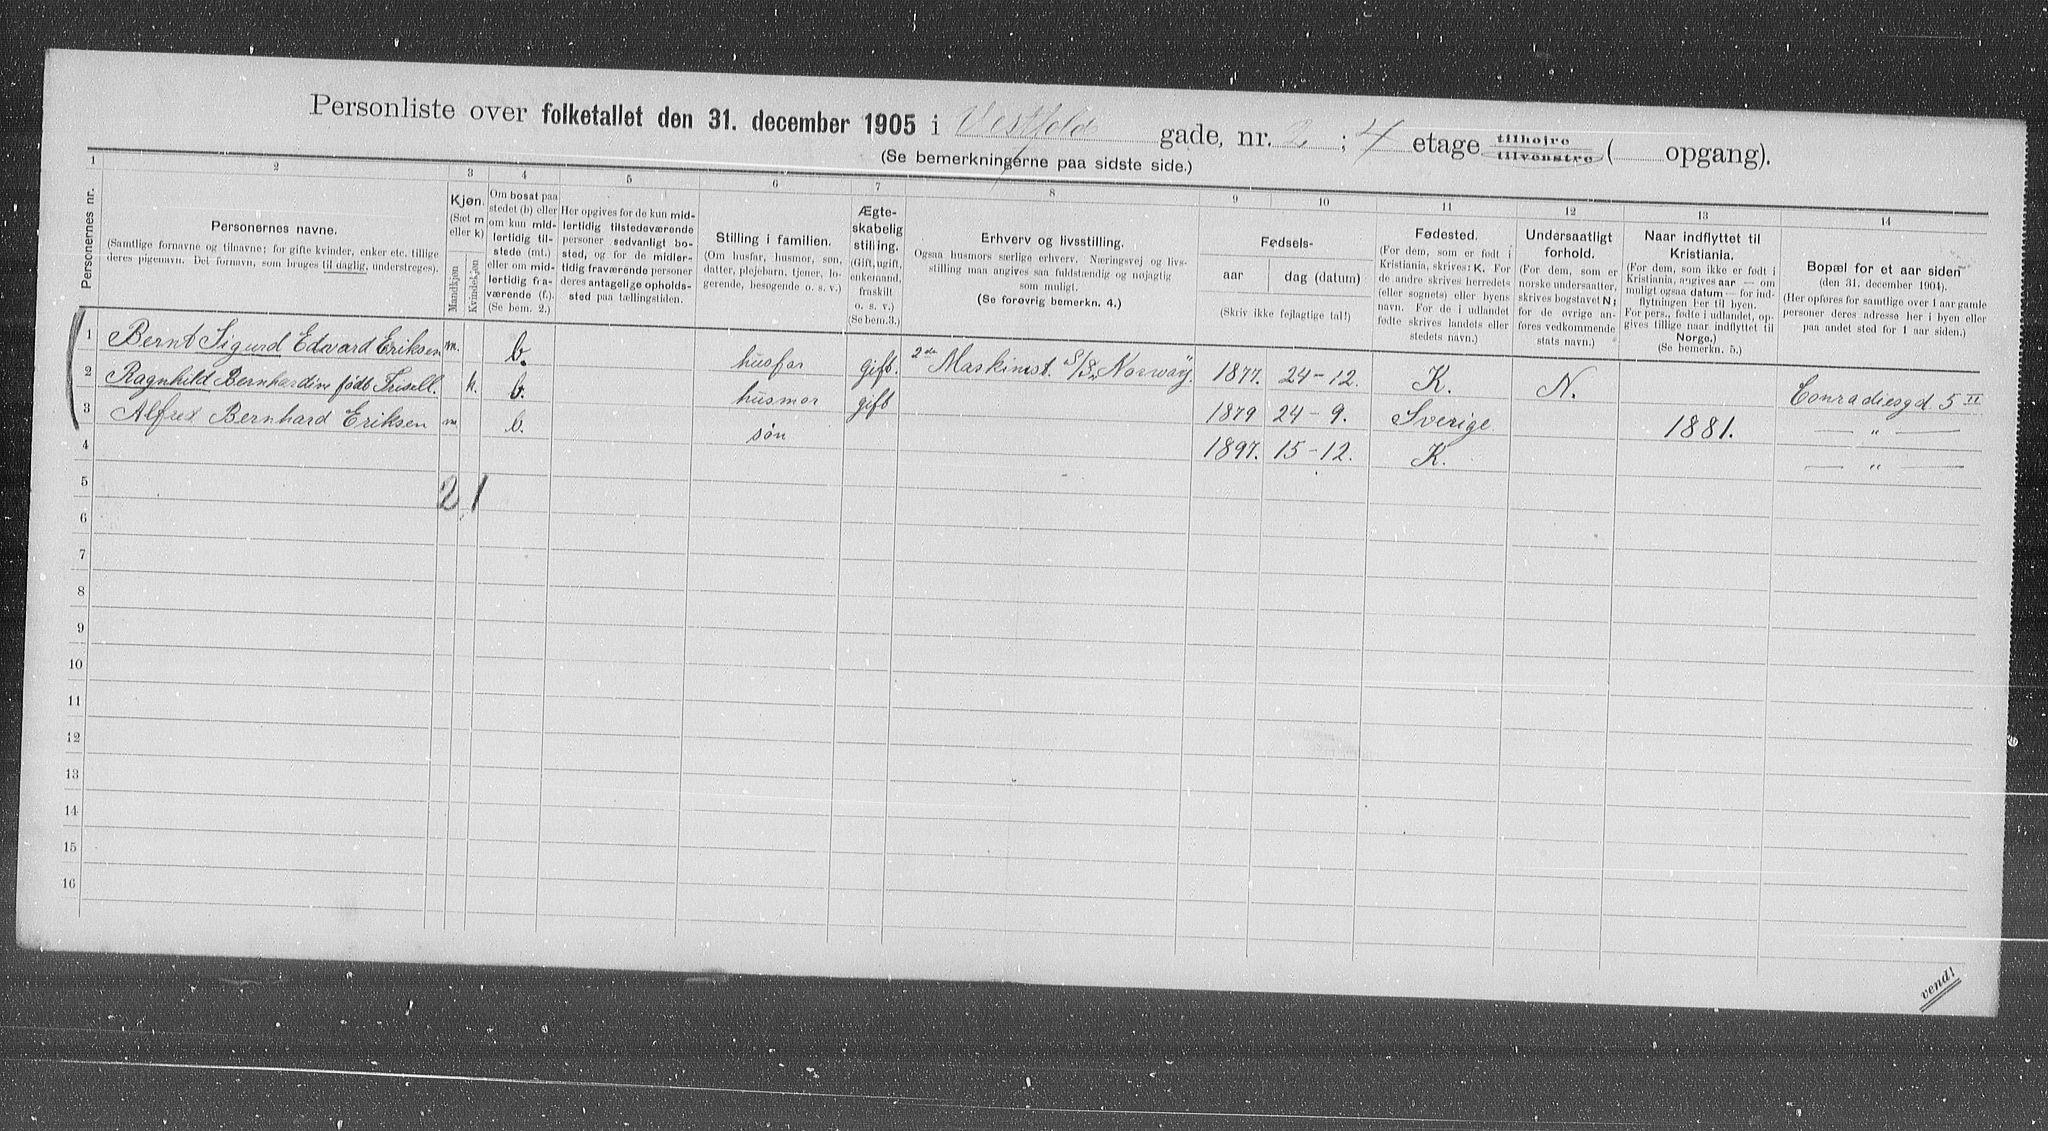 Personliste over folketallet den 31. december 1905 i Vestfold gade, nr. 2 ; 4 etage tilhøjre tilvenstre ( opgang).
(Se bemerkningerne paa sidste side.)
1 2 3 4 5 6 7 8 9 10 11 12 13 14
Personernes nr.
Personernes navne.
(Samtlige fornavne og tilnavne; for gifte kvinder, enker etc. tillige
deres pigenavn. Det fornavn, som bruges til daglig, understreges).
Kjøn.
(Sæt m
eller k)
Mandkjøn
Kvindekjøn
Om bosat paa
stedet (b) eller
om kun mid-
lertidig til-
stede (mt.)
eller om mid-
lertidig fra-
værende (f.).
(Se bem. 2.)
Her opgives for de kun mid-
lertidig tilstedeværende
personer sedvanligt bo-
sted, og for de midler-
tidig fraværende personer
deres antagelige opholds-
sted paa tællingstiden.
Stilling i familien.
(Om husfar, husmor, søn,
datter, plejebarn, tjener, lo-
gerende, besøgende o. s. v.)
Ægte-
skabelig
stilling.
(Gift, ugift,
enkemand,
fraskilt
o. s. v.)
(Se bem. 3.)
Erhverv og livsstilling.
Ogsaa husmors særlige erhverv. Næringsvej og livs-
stilling maa angives saa fuldstændig og nøjagtig
som muligt.
(Se forøvrig bemerkn. 4.)
Fødsels-
aar
dag (datum)
(Skriv ikke fejlagtige tal!)
Fødested.
(For dem, som er født i
Kristiania, skrives: K. For
de andre skrives herredets
(eller sognets) eller byens
navn. For de i udlandet
fødte skrives landets eller
stedets navn.)
Undersaatligt
forhold.
(For dem, som er
norske undersaatter,
skrives bogstavet N;
for de øvrige an-
føres vedkommende
stats navn.)
Naar indflyttet til
Kristiania.
(For dem, som ikke er født i
Kristiania, angives aar — om
muligt ogsaa datum — for ind-
flytningen her til byen.
For pers., fødte i udlandet, op-
gives tillige naar indflyttet til
Norge.)
(Se bemerkn. 5.)
Bopæl for et aar siden
(den 31. december 1904).
(Her opføres for samtlige over 1 aar gamle
personer deres adresse her i byen eller
paa andet sted for 1 aar siden.)
1 Bernt Sigurd Edvard Eriksen m. b. husfar gift. 2den Maskinist S/S Norway. 1877. 24-12. K. N. Conradiesgd. 5 II
2 Ragnhild Bernhardine født Frisell. k. b. husmor gift 1879 24-9. Sverige 1881. — " —
3 Alfred Bernhard Eriksen m. b. søn 1897. 15-12. K. — " —
4
5 2 1
6
7
8
9
10
11
12
13
14
15
16
vend!